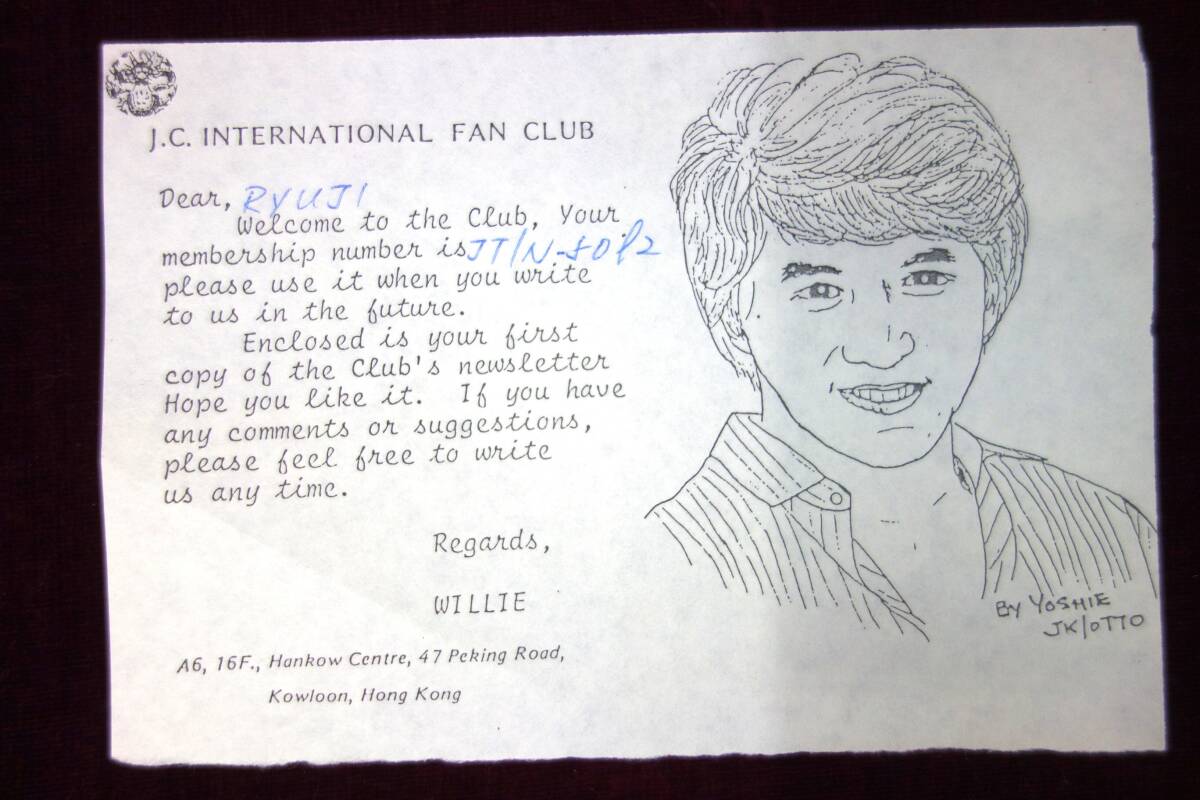 J.C. INTERNATIONAL FAN CLUB
Dear, RYUJI
Welcome to the Club, Your
membership number is JT/N-5012
please use it when you write
to us in the future.
Enclosed is your first
copy of the Club's newsletter
Hope you like it. If you have
any comments or suggestions,
please feel free to write
us any time.
Regards,
WILLIE
A6, 16F., Hankow Centre, 47 Peking Road,
Kowloon, Hong Kong
BY YOSHIE
JK/0770